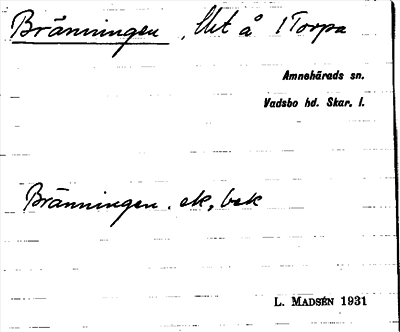 Bränningen, Urt å 1 Torpa
Amnehärads sn.
Vadsbo hd. Skar. l.
Bränningen. ek, bek
L. MADSÉN 1931